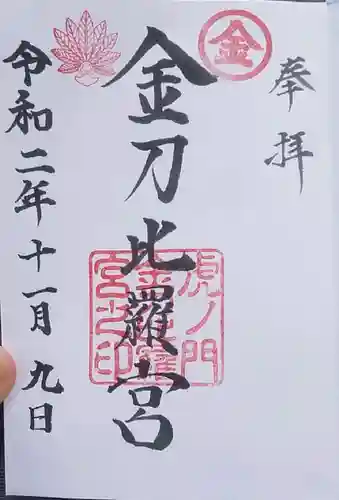 奉拝
金
金刀比羅宮
虎ノ門
金刀比羅
宮之印
令和二年十一月九日